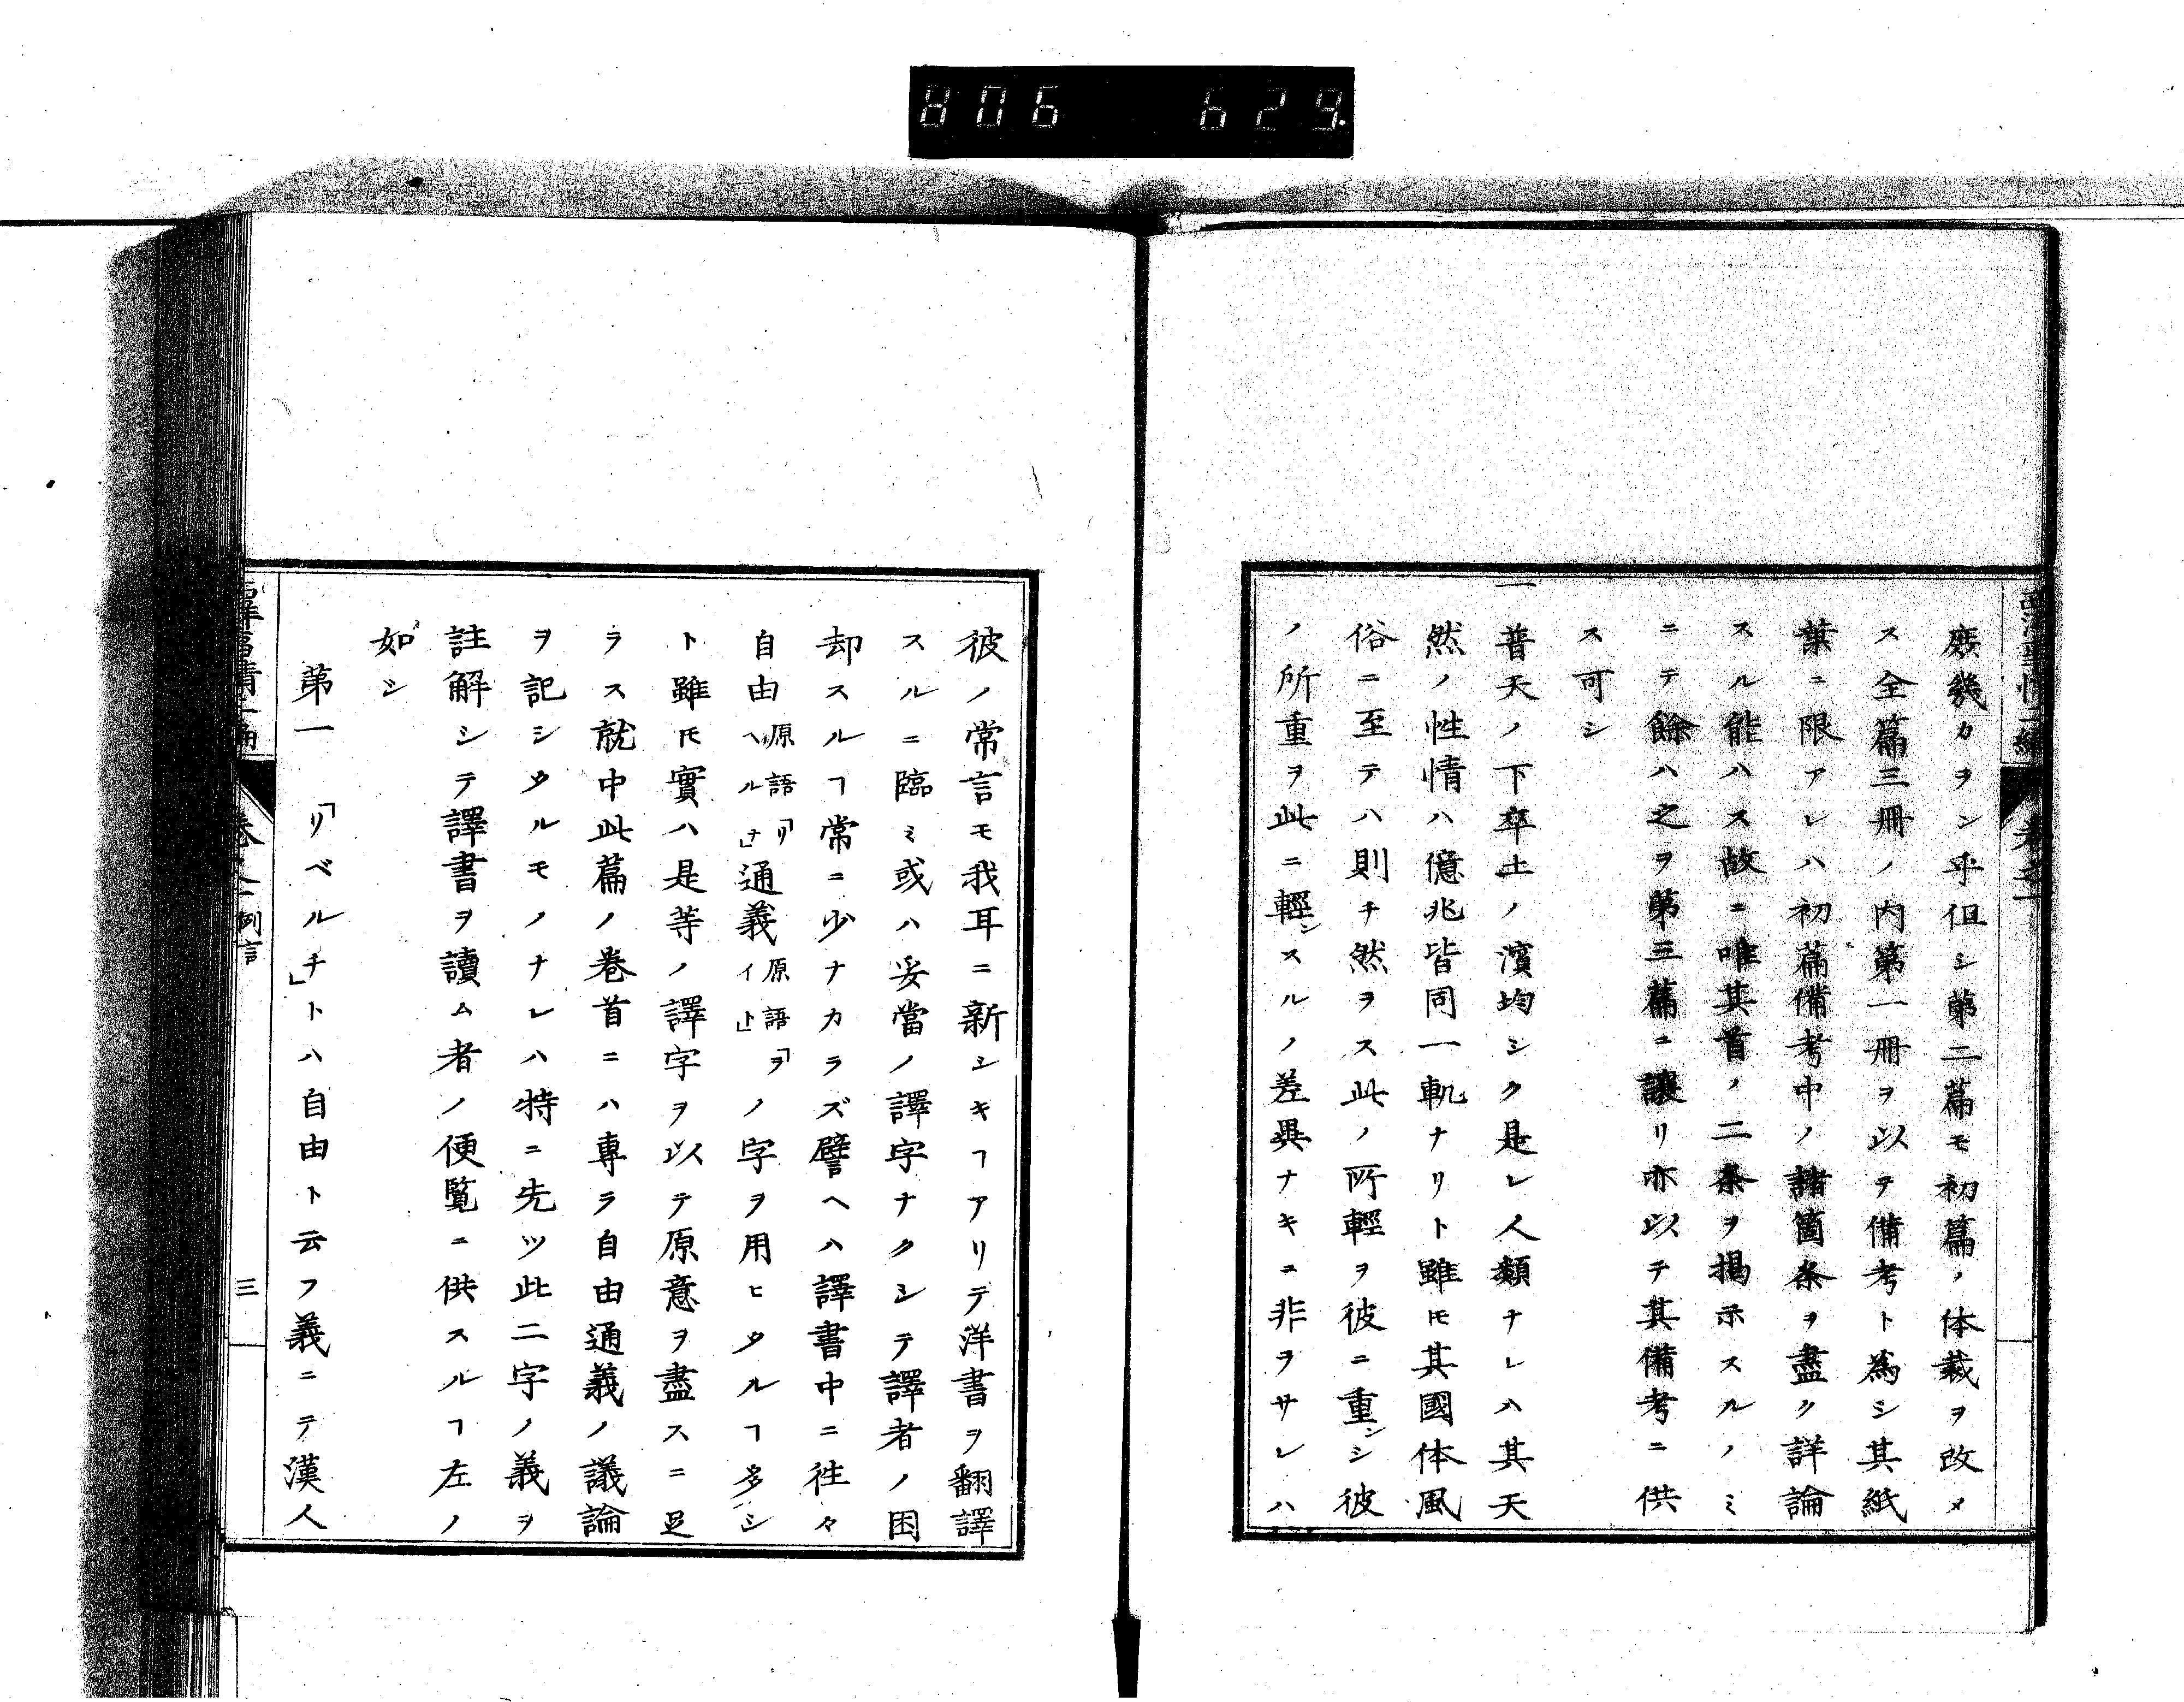 806 629
庶幾カヲン乎但シ第二篇モ初篇ノ体裁ヲ改メ
ス全篇三冊ノ内第一冊ヲ以テ備考ト為シ其紙
葉ニ限アレハ初篇備考中ノ諸箇条ヲ盡ク詳論
スル能ハス故ニ唯其首ノ二条ヲ掲示スルノミ
ニテ餘ハ之ヲ第三篇ニ譲リ亦以テ其備考ニ供
ス可シ
一普天ノ下卒土ノ濱均シク是レ人類ナレハ其天
然ノ性情ハ億兆皆同一軌ナリト雖𪜈其國体風
俗ニ至テハ則チ然ヲス此ノ所輕ヲ彼ニ重ンシ彼
ノ所重ヲ此ニ輕ンスルノ差異ナキニ非ヲサレハ
彼ノ常言モ我耳ニ新シキヿアリテ洋書ヲ翻譯
スルニ臨ミ或ハ妥當ノ譯字ナクシテ譯者ノ困
却スルヿ常ニ少ナカラズ譬ヘハ譯書中ニ往々
自由原語「リヘルチ」通義原語「ヲイト」ノ字ヲ用ヒタルヿ多シ
ト雖𪜈實ハ是等ノ譯字ヲ以テ原意ヲ盡スニ足
ラス就中此篇ノ巻首ニハ専ラ自由通義ノ議論
ヲ記シタルモノナレハ特ニ先ツ此二字ノ義ヲ
註解シテ譯書ヲ讀ム者ノ便覧ニ供スルヿ左ノ
如シ
第一「リベルチ」トハ自由ト云フ義ニテ漢人
例言
三